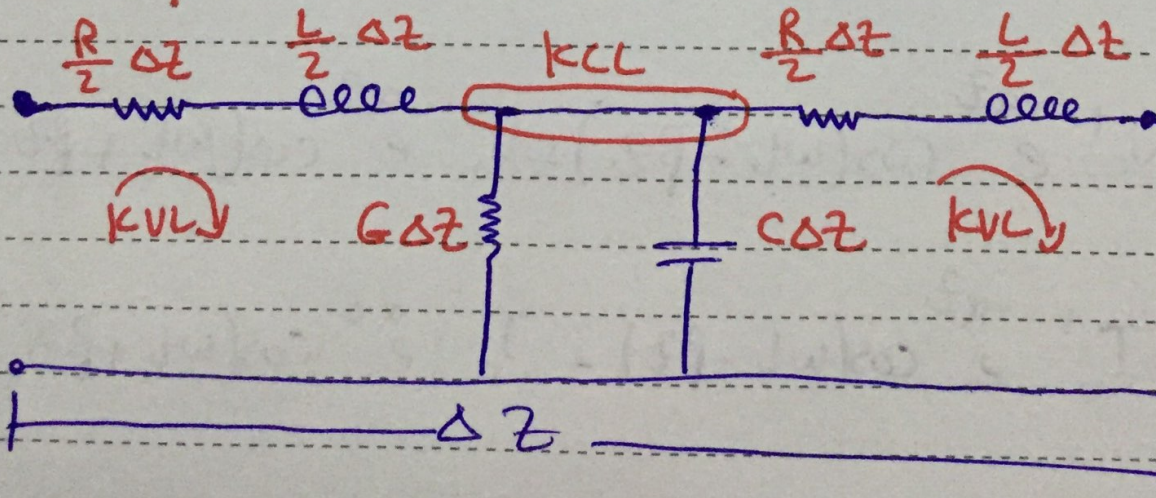 R/2 ΔZ L/2 ΔZ KCL R/2 ΔZ L/2 ΔZ
KVL GΔZ CΔZ KVL
ΔZ